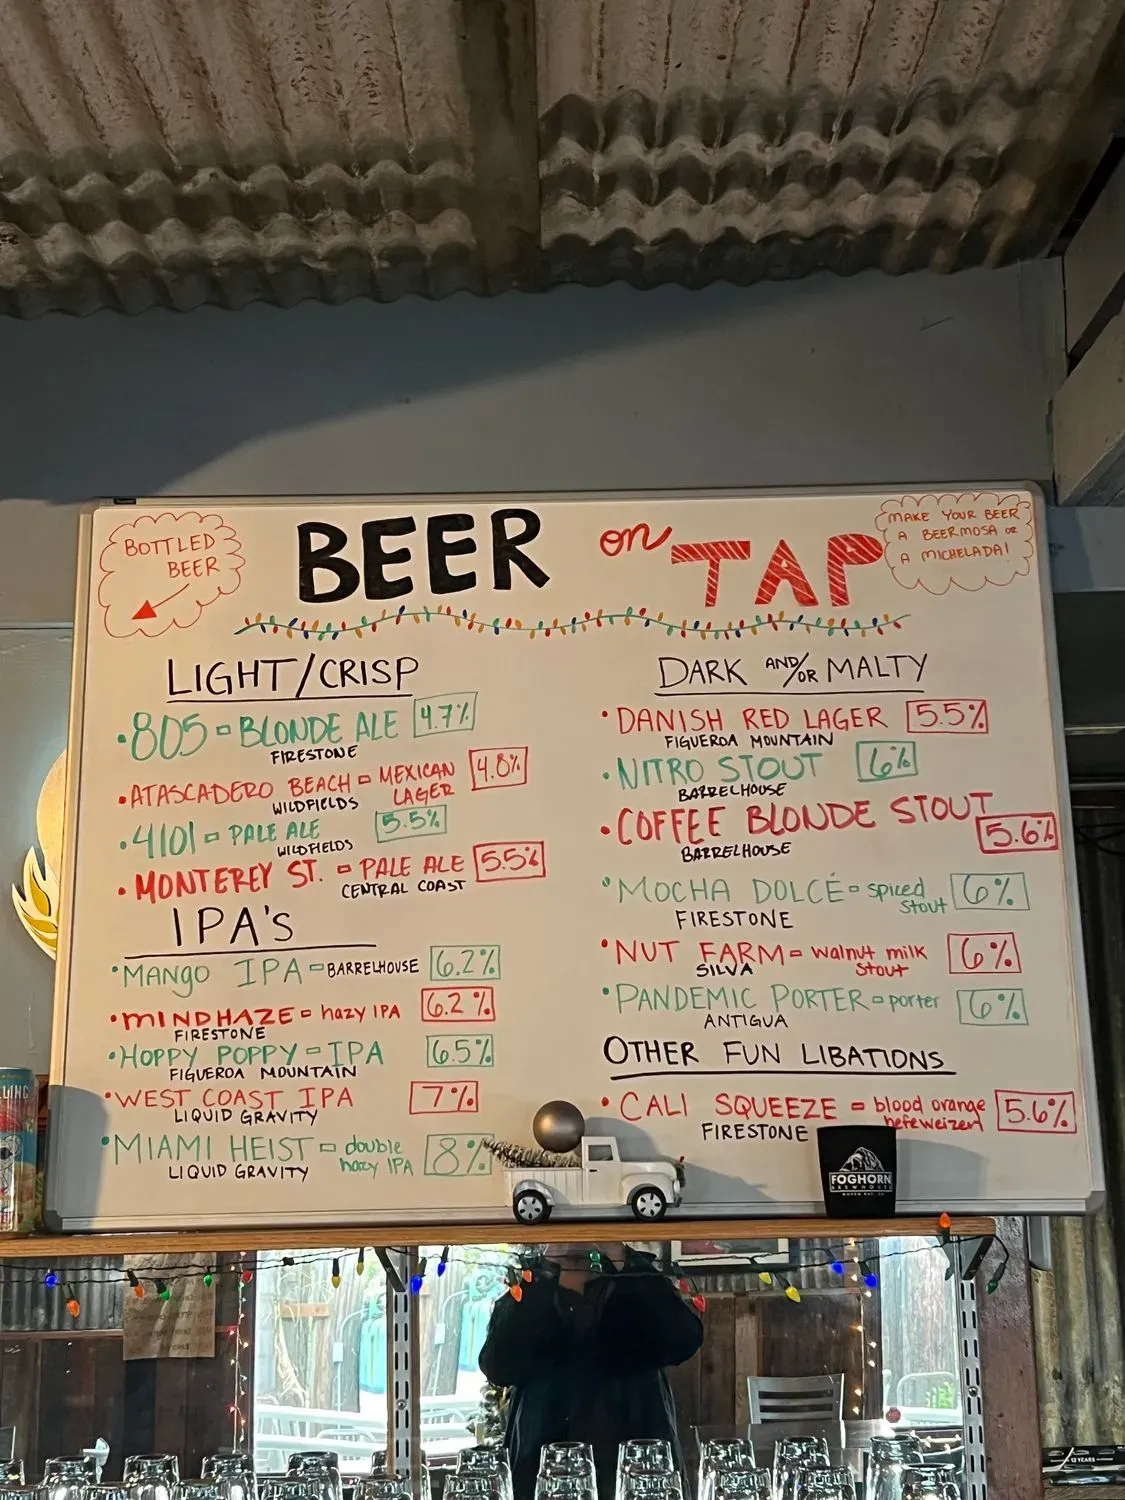 BOTTLED
BEER
BEER on TAP
MAKE YOUR BEER
A BEERMOSA OR
A MICHELADA!
LIGHT/CRISP
805 - BLONDE ALE 4.7%
FIRESTONE
ATASCADERO BEACH - MEXICAN LAGER 4.8%
WILDFIELDS
4101 - PALE ALE 5.5%
WILDFIELDS
MONTEREY ST. - PALE ALE 5.5%
CENTRAL COAST
IPA'S
MANGO IPA - BARRELHOUSE 6.2%
MINDHAZE - hazy IPA 6.2%
FIRESTONE
HOPPY POPPY - IPA 6.5%
FIGUEROA MOUNTAIN
WEST COAST IPA 7%
LIQUID GRAVITY
MIAMI HEIST - double hazy IPA 8%
LIQUID GRAVITY
DARK AND/OR MALTY
DANISH RED LAGER 5.5%
FIGUEROA MOUNTAIN
NITRO STOUT 6%
BARRELHOUSE
COFFEE BLONDE STOUT 5.6%
BARRELHOUSE
MOCHA DOLCÉ - spiced stout 6%
FIRESTONE
NUT FARM - walnut milk stout 6%
SILVA
PANDEMIC PORTER - porter 6%
ANTIGUA
OTHER FUN LIBATIONS
CALI SQUEEZE - blood orange hefeweizen 5.6%
FIRESTONE
FOGHORN
BREWHOUSE
12 YEARS